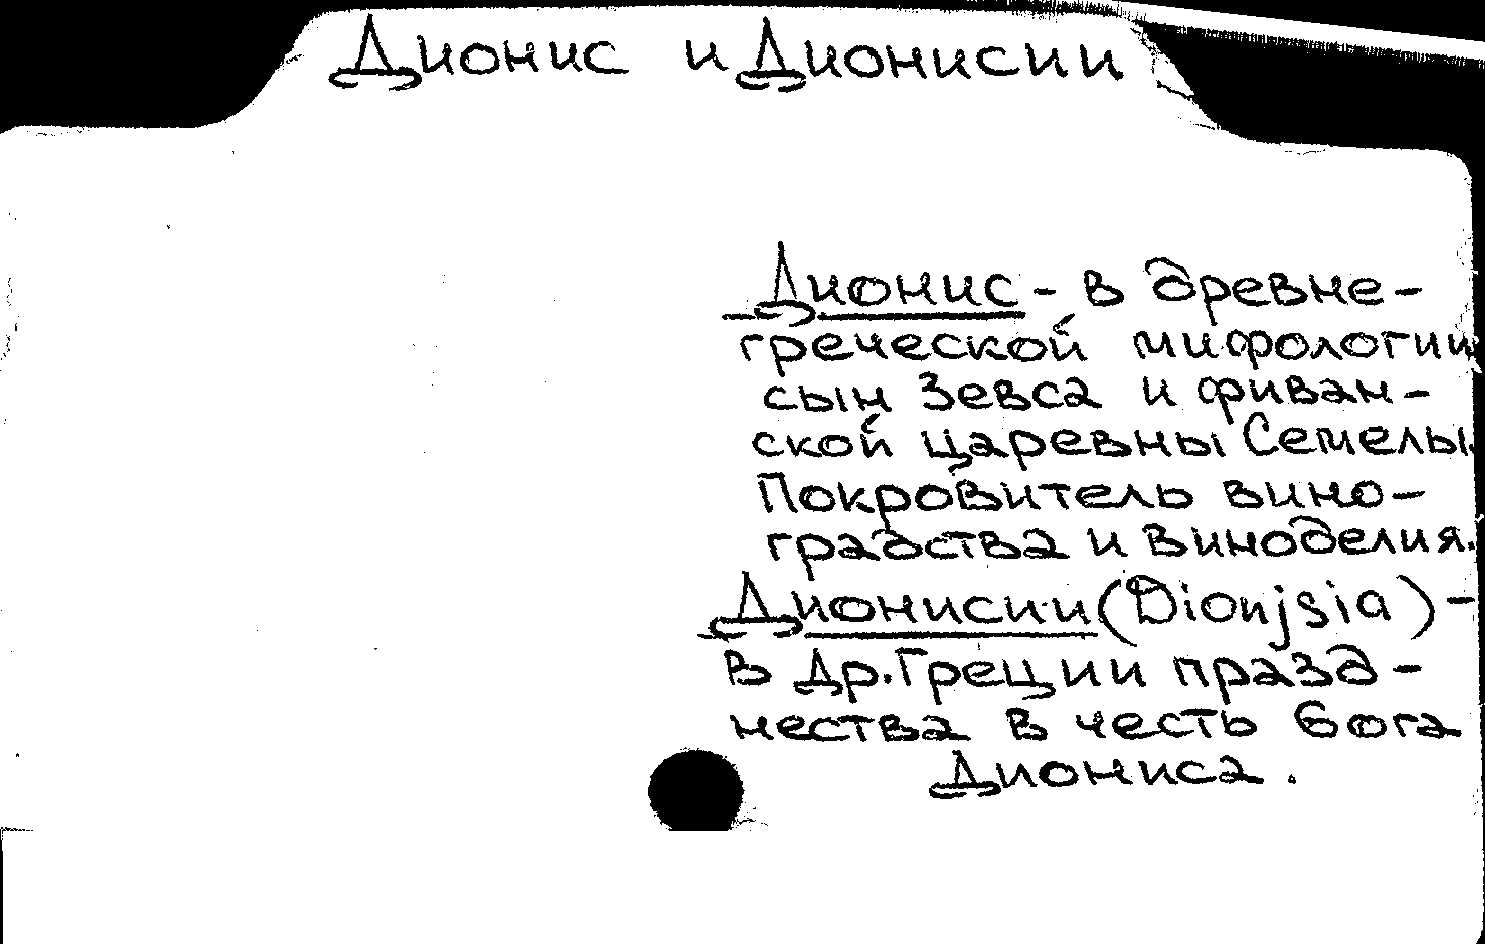 Дионис и Дионисии
Дионис - в древне-
греческой мифологии
сын Зевса и фиван-
ской царевны Семелы.
Покровитель вино-
градства и виноделия.
Дионисии (Dionjsia) -
в Др. Греции празд-
нества в честь бога
Диониса.